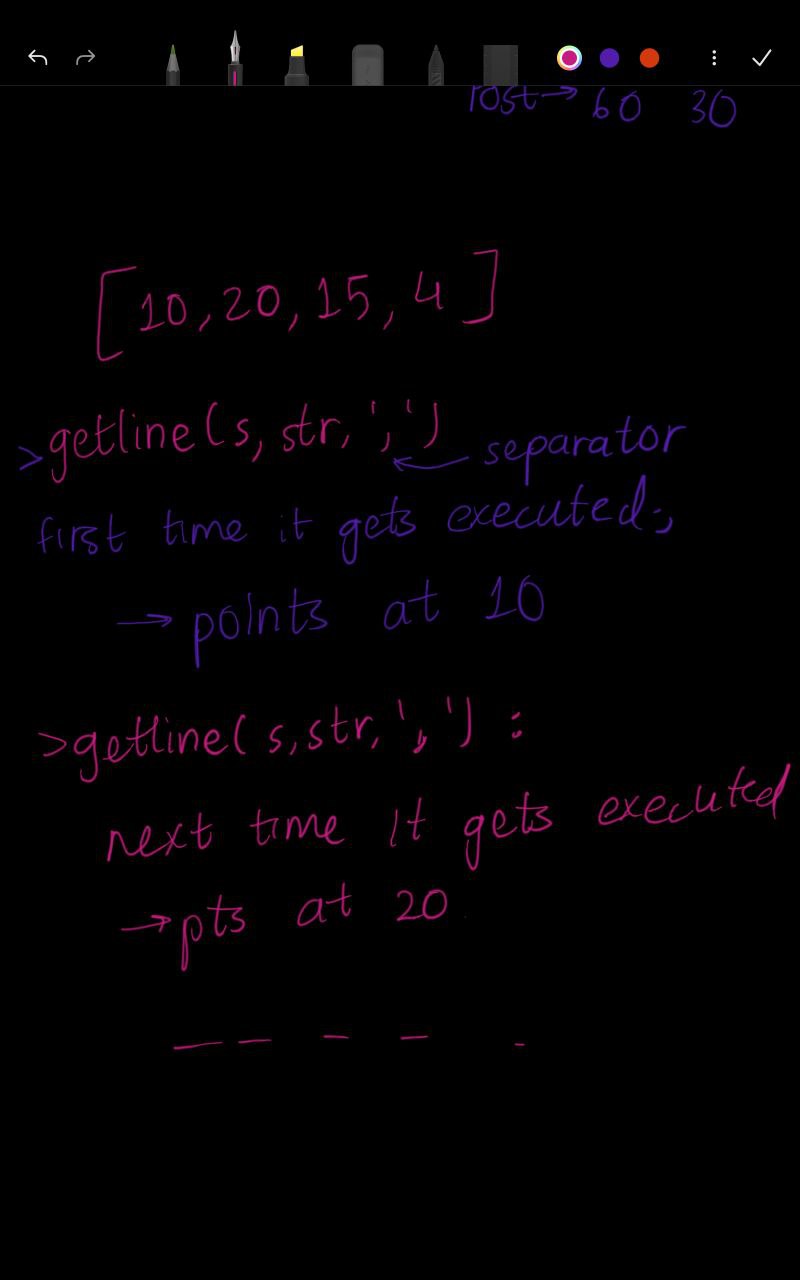 post → 60 30
[10, 20, 15, 4]
>getline(s, str, ',')
← separator
first time it gets executed:,
→ points at 10
>getline(s,str,',') :
next time it gets executed
→ pts at 20
— — – – -